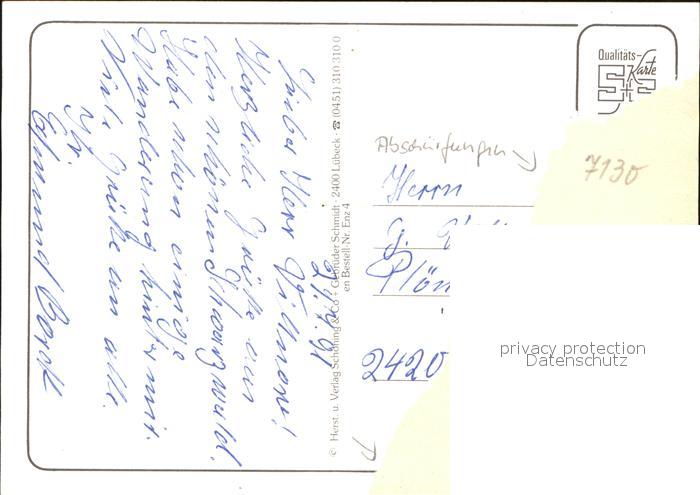 21.7.91
Lieber Herr Villnow!
Herzliche Grüße aus
dem schönen Schwarzwald.
Habe schon einige
Wanderung hinter mir.
Viele Grüße an alle.
Ihr
© Herst. u. Verlag Schöning & Co + Gebrüder Schmidt · 2400 Lübeck · ☎ (0451) 310 310-0
en Bestell.-Nr. Enz 4
Qualitäts-
Karte
S+E
Abschürfungen
7130
Herrn
G.
Plön
2420
privacy protection
Datenschutz